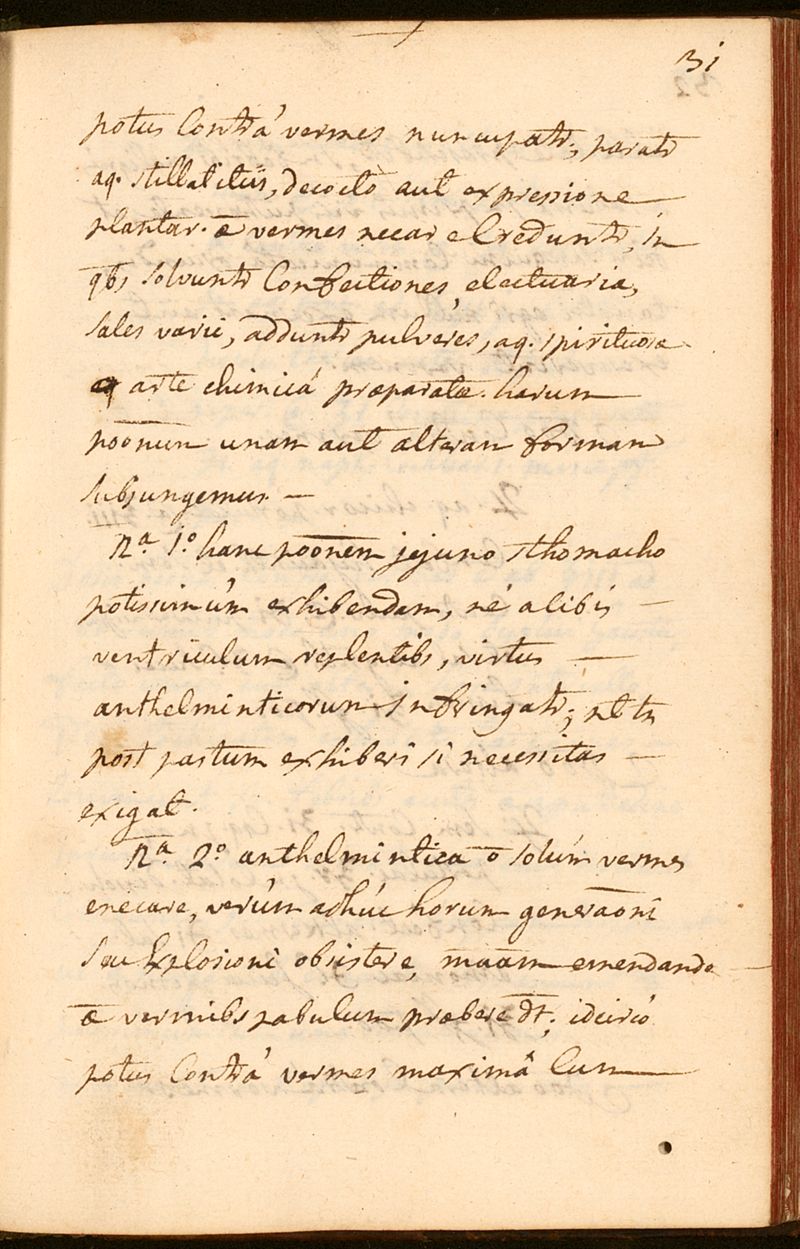 31
potus contrá vermes nuncupatr; paratr
aq. stillatitiis, decocto aut expressione
plantar. æ vermes necare creduntr, in
qbs solvuntr Confectiones, electuaria,
sales varii, adduntr pulveres, aq. spirituosæ
arte chimicá præparatæ. harum
pōōnum unam aut alteram formam
subjungemus —
na. 1o hanc pōōnem jejuno sthomacho
potissimúm exhibendam, né alibis —
ventriculum replentibs, virtus —
anthelminticorum infringatr;
post pastum exhiberi si necessitas —
exigat.
na. 2o anthelmintica ō solúm vermes
enecare, verúm adhúc horum generāōni
seu Explosioni obsistere, māām emendando —
æ vermibs pabulum præbere dt; idcircó
potus contrá vermes maximâ cum —